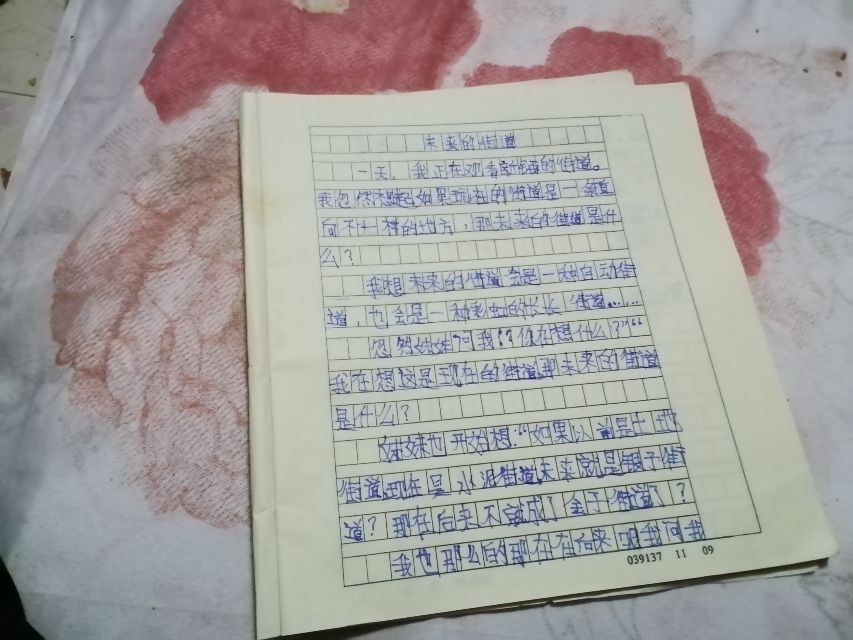 未来的街道
一天，我正在观看城的街道。
我忽然想起如果现在的街道是一条直
向不一样的地方，那未来的街道是什
么？
我想未来的街道会是一种自动街
道，也会是一种彩虹的长长街道……
忽然妹妹问我：“你在想什么？”“
我在想这是现在的街道那未来的街道
是什么？
妹妹也开始想“如果以前是土地
街道现在是水泥街道未来就是银子街
道？那在后来不就成了金子街道了？
我也那么的那在在后来呢我问我
039137 11 09